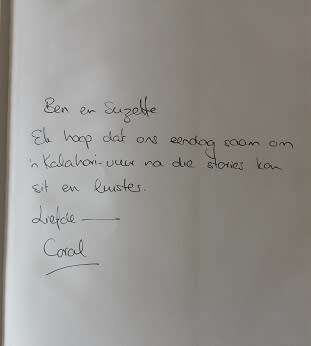 Ben en Suzette
Ek hoop dat ons eendag saam om
'n Kalahari-vuur na die stories kan
sit en luister.
Liefde —
Coral